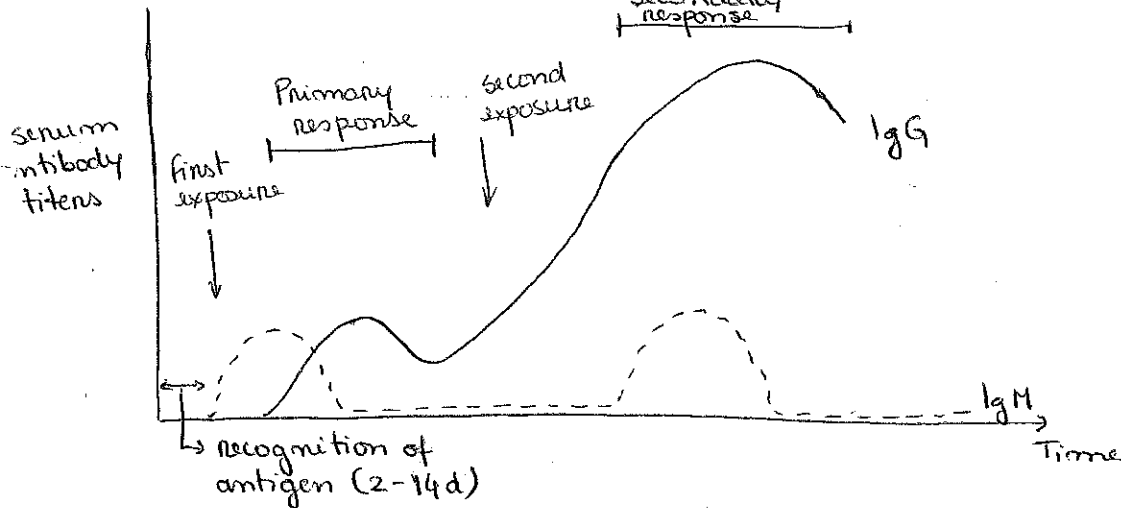 response
Primary
response
second
exposure
serum
ntibody
titers
first
exposure
IgG
IgM
Time
recognition of
antigen (2-14d)